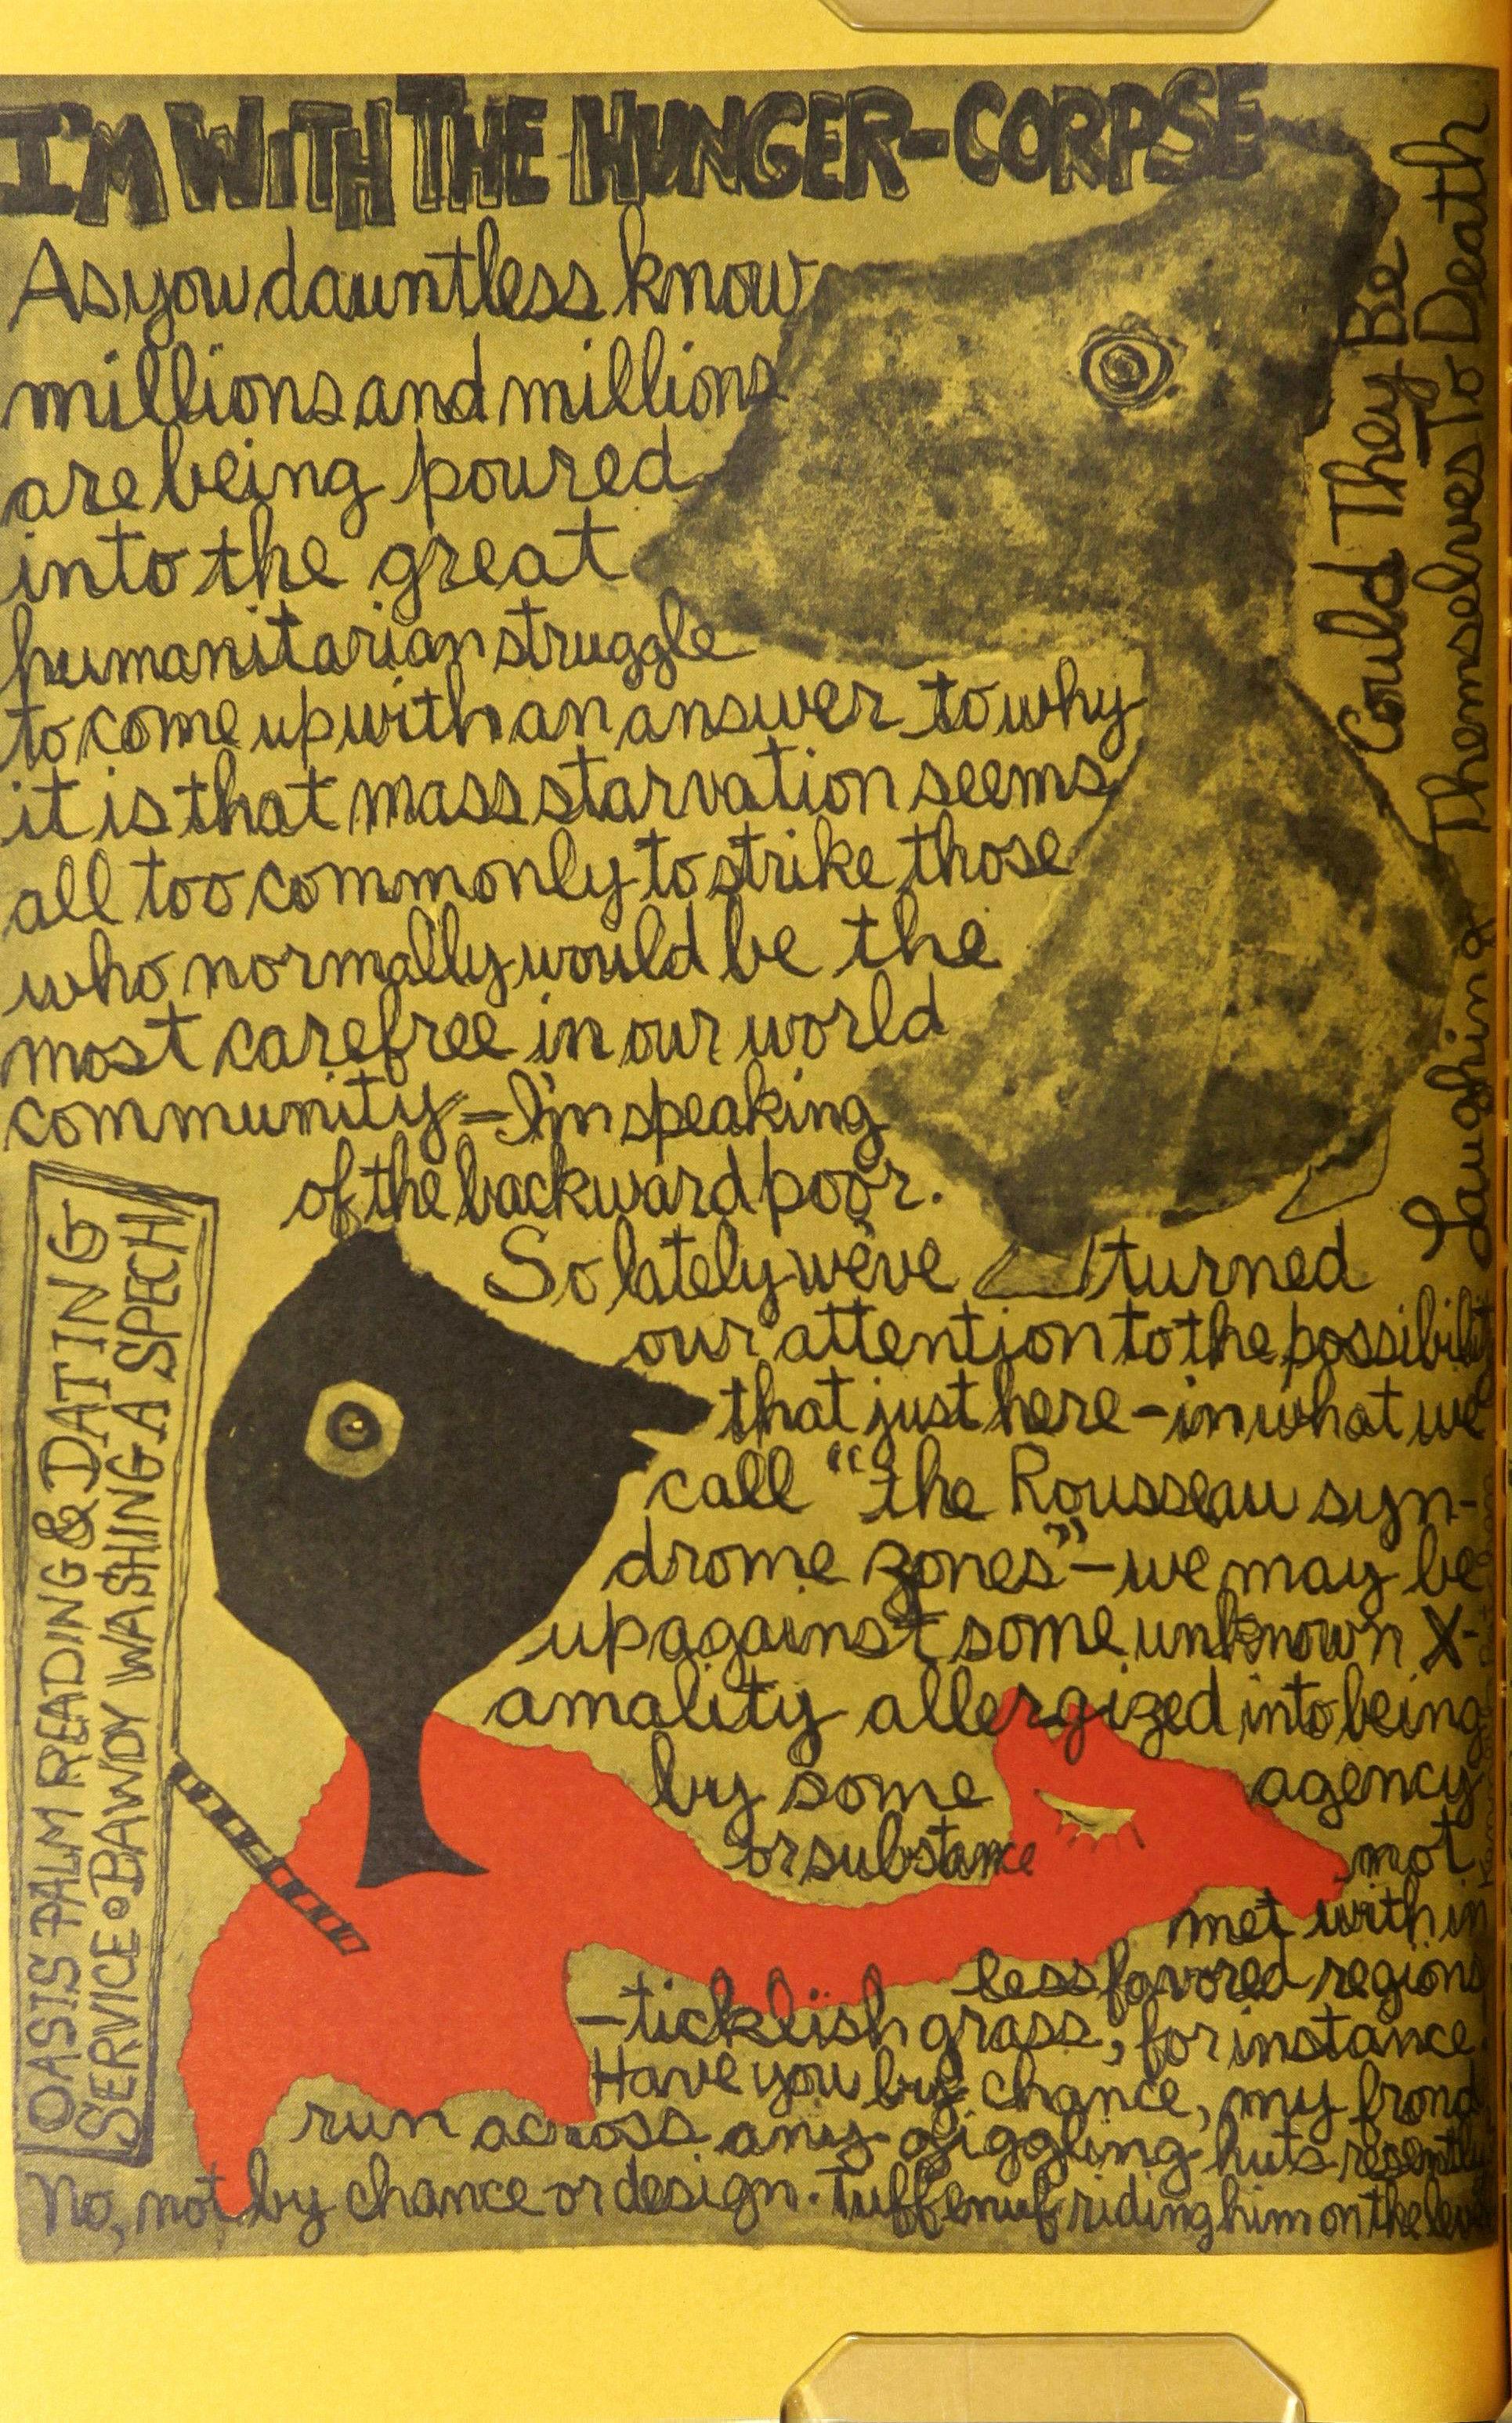 I'M WITH THE HUNGER-CORPSE
As you dauntless know
millions and millions
are being poured
into the great
humanitarian struggle
to come up with an answer to why
it is that mass starvation seems
all too commonly to strike those
who normally would be the
most carefree in our world
community—I'm speaking
of the backward poor.
So lately we've turned
our attention to the possibilit
that just here—in what we
call "the Rousseau syn-
drome zones"—we may be
up against some unknown X-
amality allergized into being
by some agency
or substance not
met with in
less favored regions
—ticklish grass, for instance.
Have you by chance, my frond
run across any giggling huts resently
No, not by chance or design. Tuff enuf riding him on the
Could They Be
Laughing Themselves To Death
OASIS PALM READING & DATING
SERVICE • BAWDY WASHING A SPECH